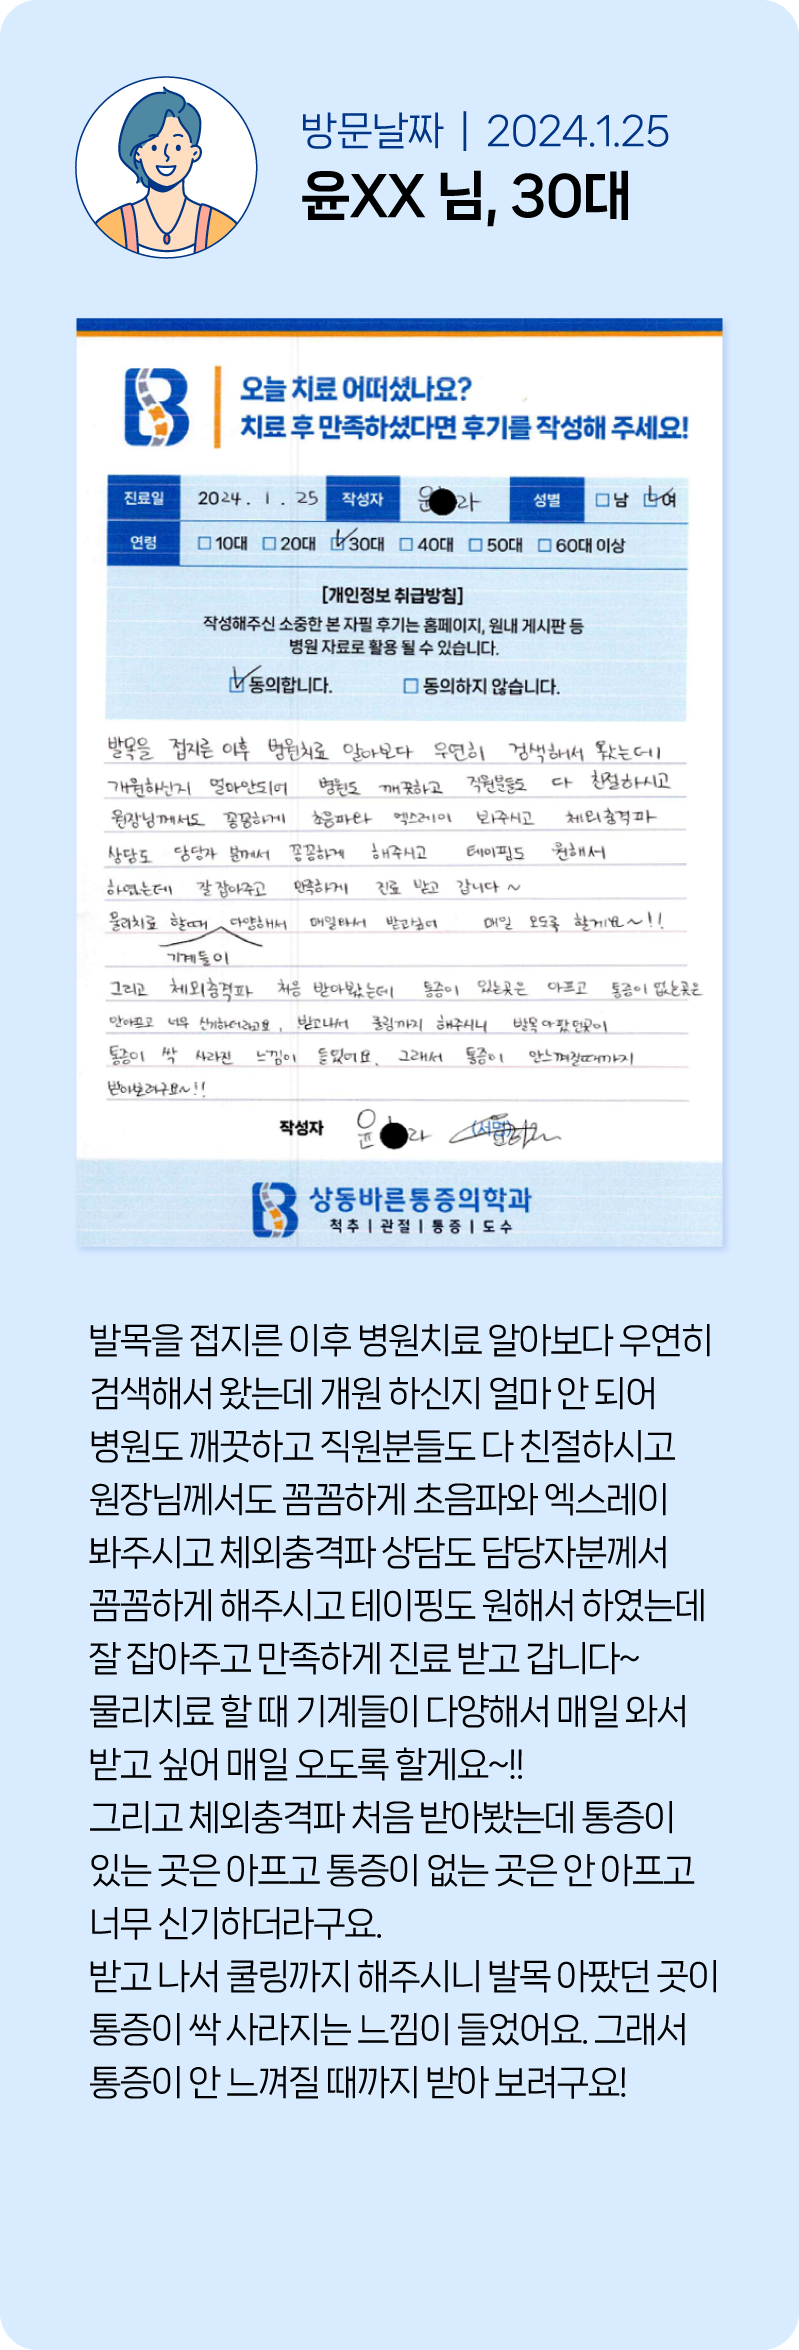 방문날짜 | 2024.1.25
윤XX 님, 30대
오늘 치료 어떠셨나요?
치료 후 만족하셨다면 후기를 작성해 주세요!
진료일 2024. 1. 25 작성자 윤 라 성별 남 여
연령 10대 20대 30대 40대 50대 60대 이상
[개인정보 취급방침]
작성해주신 소중한 본 자필 후기는 홈페이지, 원내 게시판 등
병원 자료로 활용 될 수 있습니다.
동의합니다. 동의하지 않습니다.
발목을 접지른 이후 병원치료 알아보다 우연히 검색해서 왔는데
개원하신지 얼마안되어 병원도 깨끗하고 직원분들도 다 친절하시고
원장님께서도 꼼꼼하게 초음파와 엑스레이 봐주시고 체외충격파
상담도 담당자 분께서 꼼꼼하게 해주시고 테이핑도 원해서
하였는데 잘 잡아주고 만족하게 진료 받고 갑니다~
물리치료 할때 기계들이 다양해서 매일와서 받고싶어 매일 오도록 할게요~!!
그리고 체외충격파 처음 받아봤는데 통증이 있는곳은 아프고 통증이 없는곳은
안아프고 너무 신기하더라고요, 받고나서 쿨링까지 해주시니 발목 아팠던곳이
통증이 싹 사라진 느낌이 들었어요. 그래서 통증이 안느껴질때까지
받아보려구요~!!
작성자 윤 라 (서명)
상동바른통증의학과
척추 | 관절 | 통증 | 도수
발목을 접지른 이후 병원치료 알아보다 우연히
검색해서 왔는데 개원 하신지 얼마 안 되어
병원도 깨끗하고 직원분들도 다 친절하시고
원장님께서도 꼼꼼하게 초음파와 엑스레이
봐주시고 체외충격파 상담도 담당자분께서
꼼꼼하게 해주시고 테이핑도 원해서 하였는데
잘 잡아주고 만족하게 진료 받고 갑니다~
물리치료 할 때 기계들이 다양해서 매일 와서
받고 싶어 매일 오도록 할게요~!!
그리고 체외충격파 처음 받아봤는데 통증이
있는 곳은 아프고 통증이 없는 곳은 안 아프고
너무 신기하더라구요.
받고 나서 쿨링까지 해주시니 발목 아팠던 곳이
통증이 싹 사라지는 느낌이 들었어요. 그래서
통증이 안 느껴질 때까지 받아 보려구요!